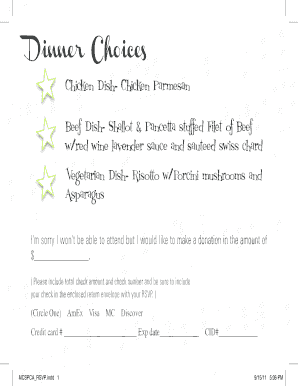 Dinner Choices
Chicken Dish- Chicken Parmesan
Beef Dish- Shallot & Pancetta stuffed Filet of Beef
w/red wine lavender sauce and sauteed swiss chard
Vegetarian Dish- Risotto w/Porcini mushrooms and
Asparagus
I'm sorry I won't be able to attend but I would like to make a donation in the amount of
$______________.
( Please include total check amount and check number and be sure to include
your check in the enclosed return envelope with your RSVP. )
(Circle One) AmEx Visa MC Discover
Credit card # __________________ Exp date__________ CID#________
MCSPCA_RSVP.indd 1
9/15/11 5:06 PM